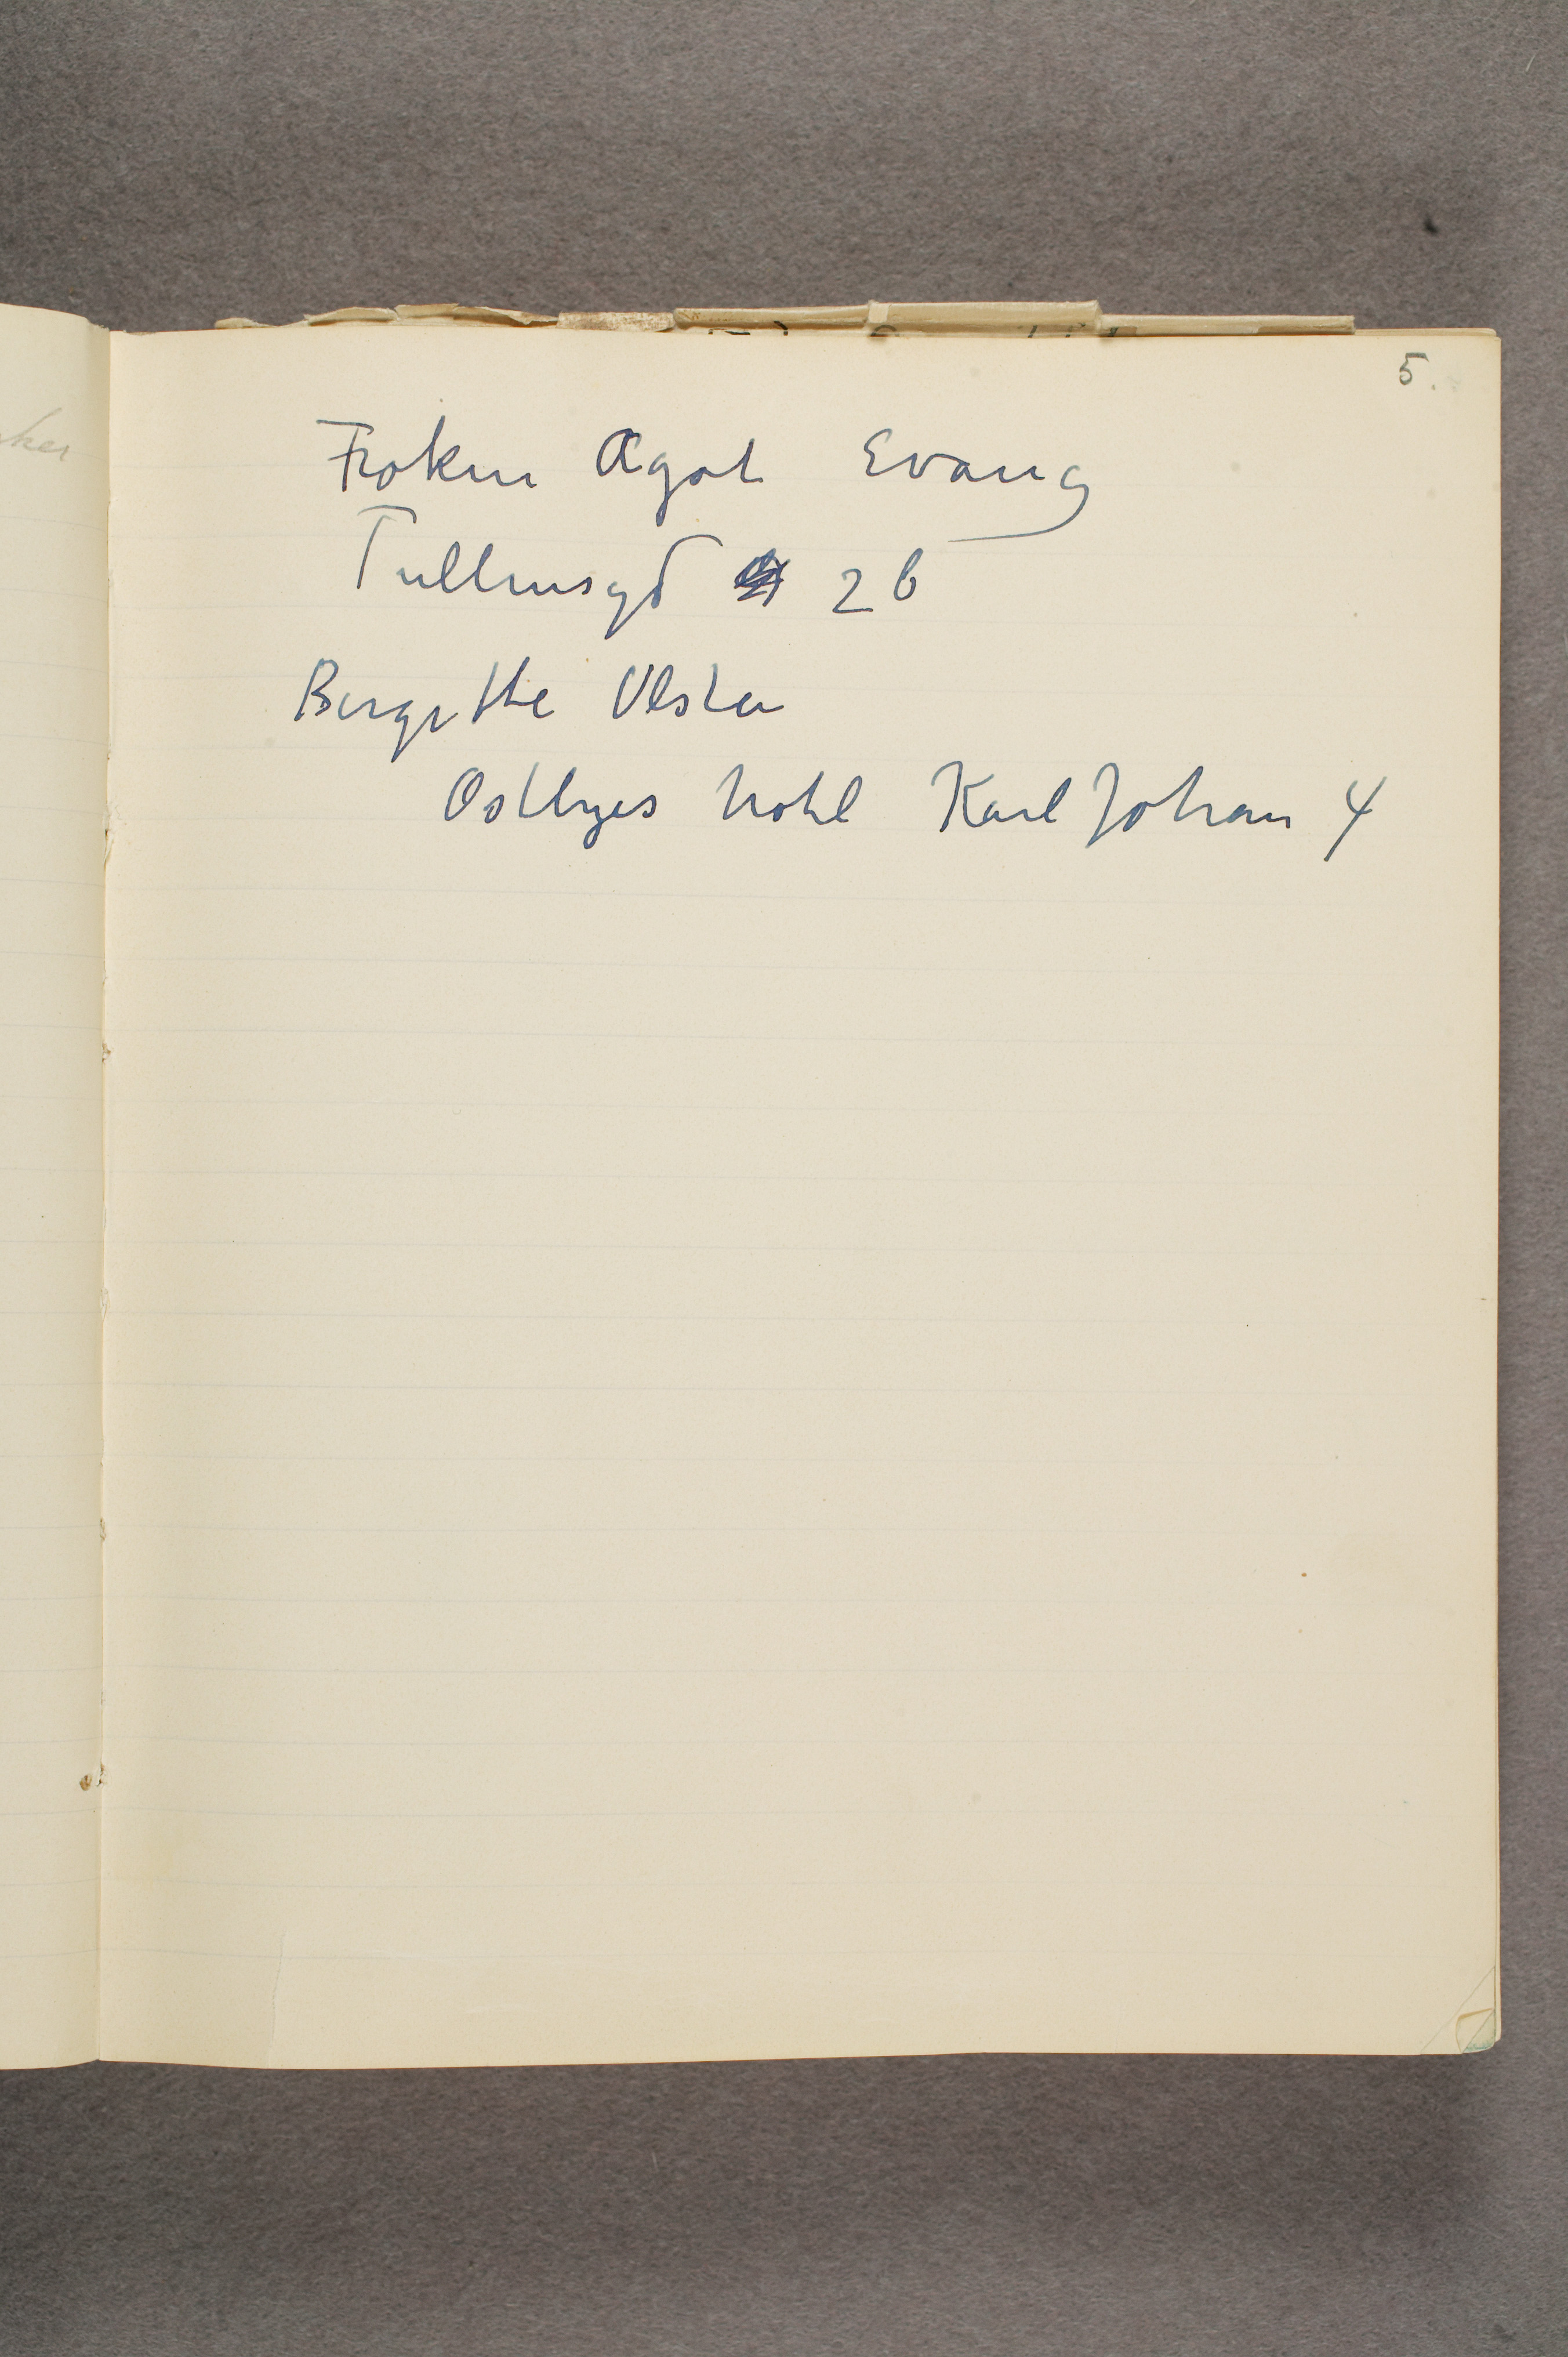 5.
Frøken Agot Evang
Tullinsgd 26
Birgitte Olsten
Ostbyes hotel Karl Johan 4